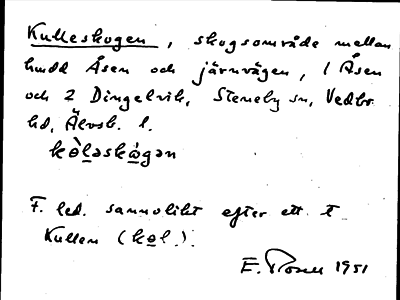 Kulleskogen, skogsområde mellan
hudd Åsen och järnvägen, 1 Åsen
och 2 Dingelvik, Steneby sn, Vedbo
hd, Älvsb. l.
kòləskó̱gən
F. led. sannolikt efter ett t
Kullen (kol.).
E. 1951